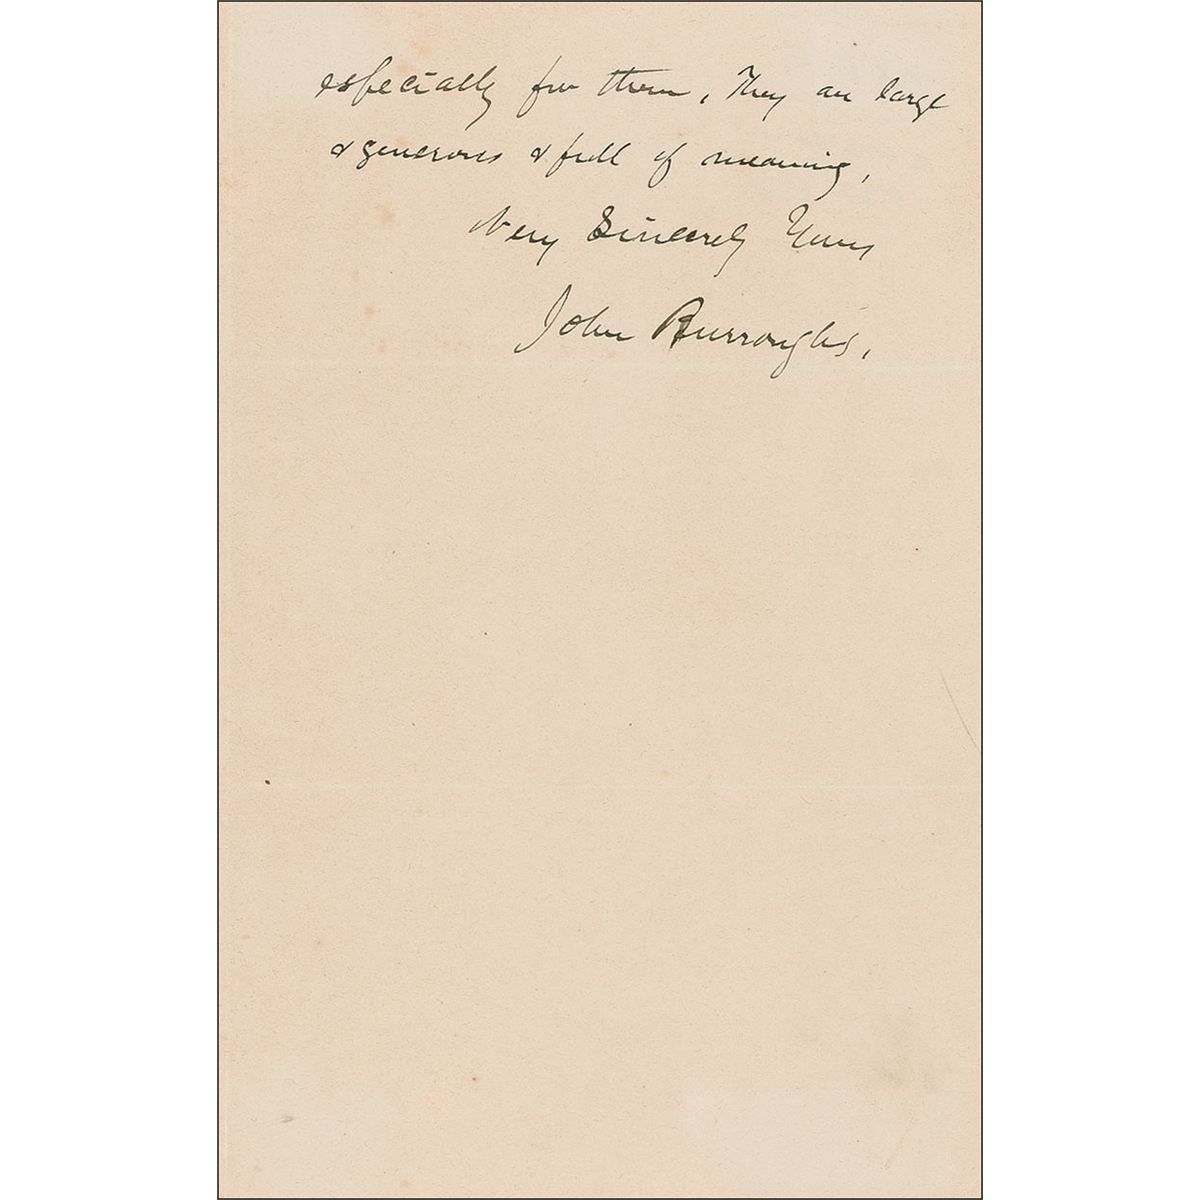 especially for them. They are large
& generous & full of meaning.
Very Sincerely Yours
John Burroughs.